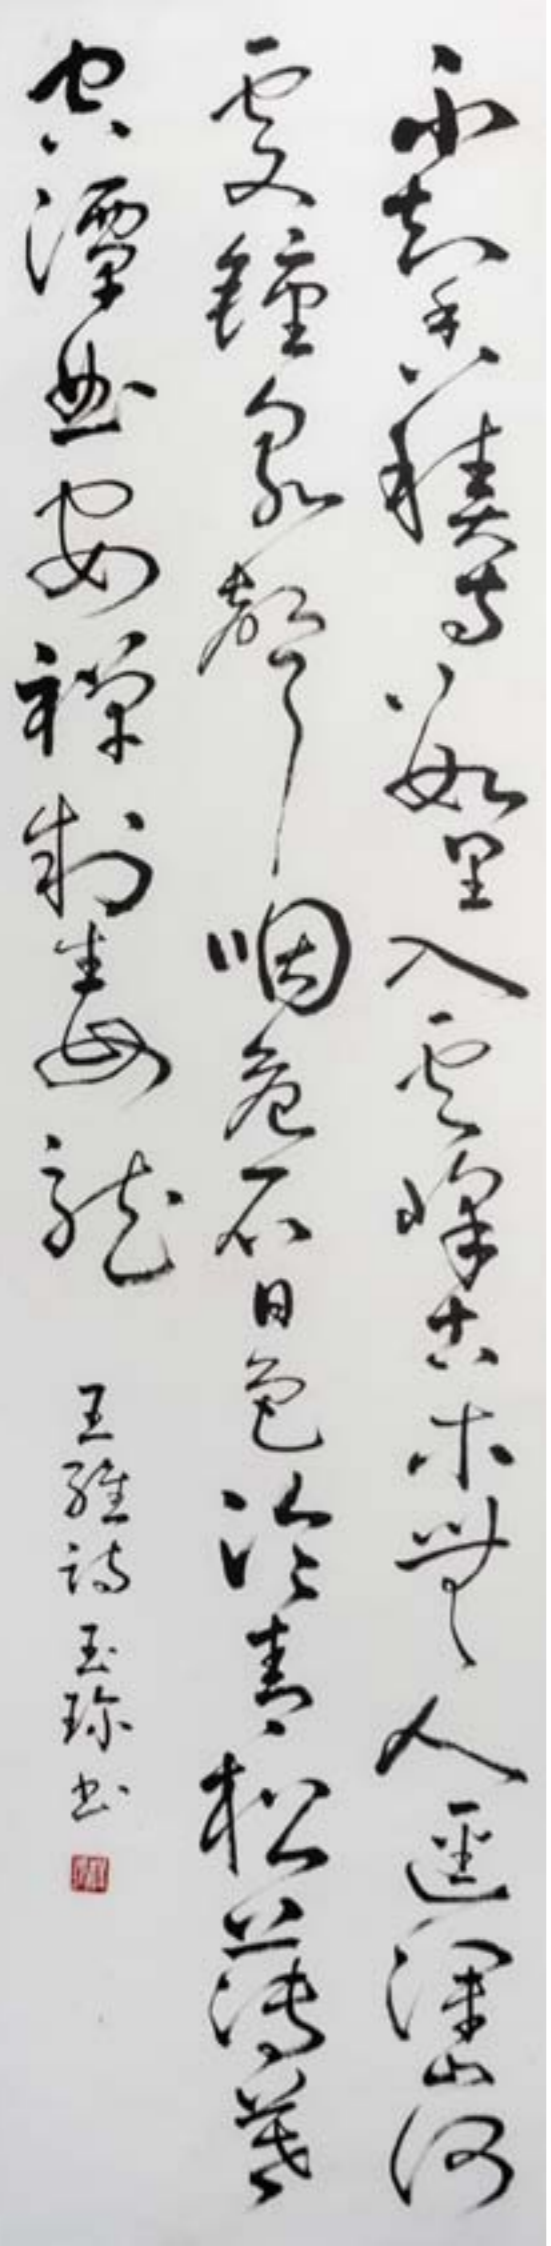 不知香積寺數里入雲峰古木無人逕深山何
處鐘泉聲咽危石日色冷青松薄暮
空潭曲安禪制毒龍
王維詩玉珍书